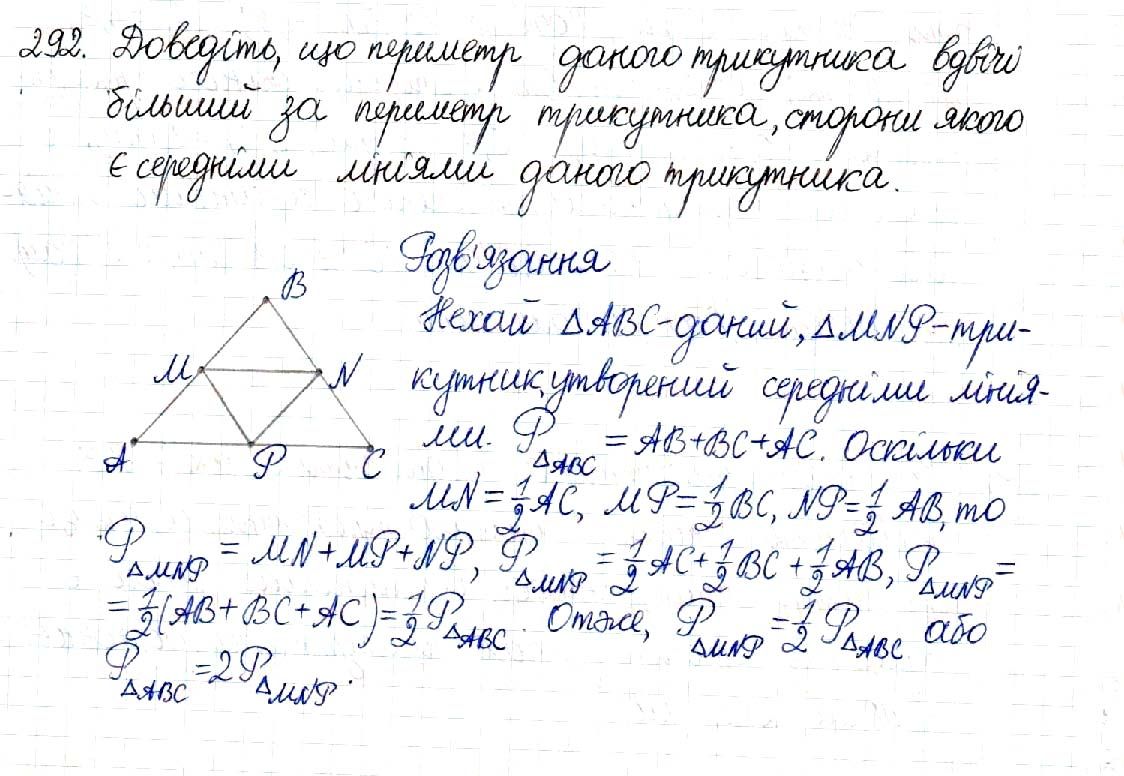 292. Доведіть, що периметр даного трикутника вдвічі
більший за периметр трикутника, сторони якого
є середніми лініями даного трикутника.
Розв'язання
B
Нехай △ABC-даний, △MNP-три-
M N
кутник, утворений середніми лінія-
ми. P△ABC = AB+BC+AC. Оскільки
A P C
MN = 1/2 AC, MP = 1/2 BC, NP = 1/2 AB, то
P△MNP = MN+MP+NP, P△MNP = 1/2 AC + 1/2 BC + 1/2 AB, P△MNP =
= 1/2 (AB+BC+AC) = 1/2 P△ABC. Отже, P△MNP = 1/2 P△ABC або
P△ABC = 2P△MNP.